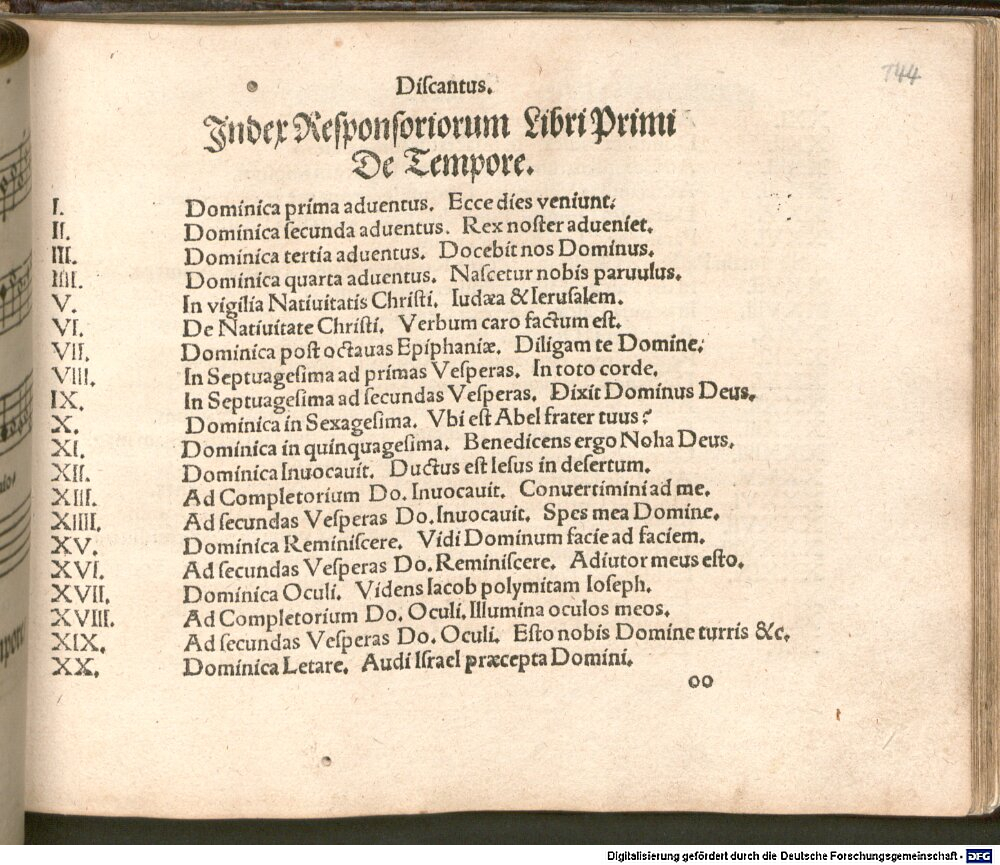 144
Diſcantus.
Index Reſponſoriorum Libri Primi
De Tempore.
I. Dominica prima aduentus. Ecce dies veniunt.
II. Dominica ſecunda aduentus. Rex noſter adueniet.
III. Dominica tertia aduentus. Docebit nos Dominus.
IIII. Dominica quarta aduentus. Naſcetur nobis paruulus.
V. In vigilia Natiuitatis Chriſti. Iudæa & Ieruſalem.
VI. De Natiuitate Chriſti. Verbum caro factum eſt.
VII. Dominica poſt octauas Epiphaniæ. Diligam te Domine.
VIII. In Septuageſima ad primas Veſperas. In toto corde.
IX. In Septuageſima ad ſecundas Veſperas. Dixit Dominus Deus.
X. Dominica in Sexageſima. Vbi eſt Abel frater tuus?
XI. Dominica in quinquageſima. Benedicens ergo Noha Deus.
XII. Dominica Inuocauit. Ductus eſt Ieſus in deſertum.
XIII. Ad Completorium Do. Inuocauit. Conuertimini ad me.
XIIII. Ad ſecundas Veſperas Do. Inuocauit. Spes mea Domine.
XV. Dominica Reminiſcere. Vidi Dominum facie ad faciem.
XVI. Ad ſecundas Veſperas Do. Reminiſcere. Adiutor meus eſto.
XVII. Dominica Oculi. Videns Iacob polymitam Ioſeph.
XVIII. Ad Completorium Do. Oculi. Illumina oculos meos.
XIX. Ad ſecundas Veſperas Do. Oculi. Eſto nobis Domine turris &c.
XX. Dominica Letare. Audi Iſrael præcepta Domini.
oo
Digitalisierung gefördert durch die Deutsche Forschungsgemeinschaft - DFG